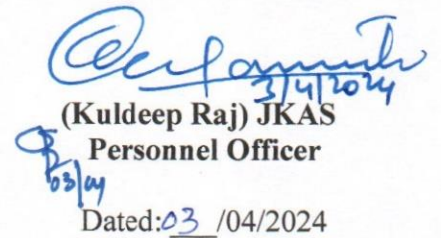 3/4/2024
(Kuldeep Raj) JKAS
Personnel Officer
03/04
Dated:03 /04/2024